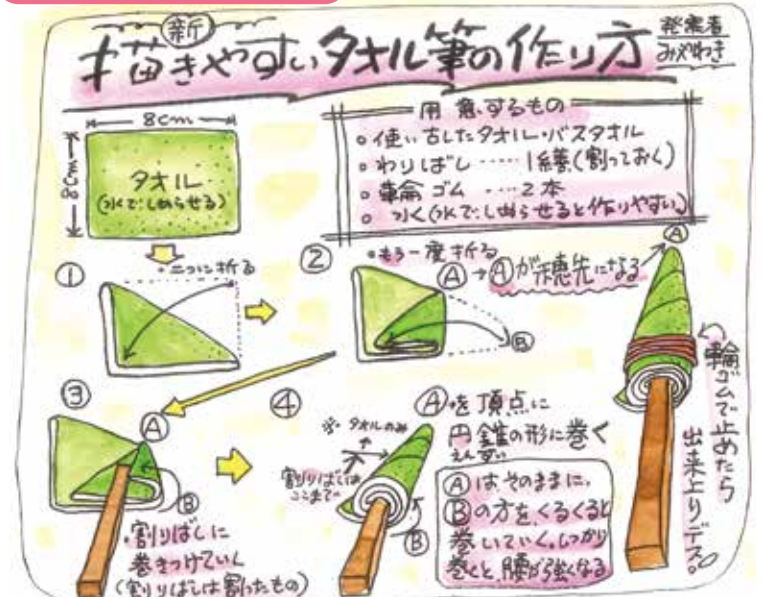 新
描きやすいタオル筆の作り方
発案者
みやわき
8cm
8cm
タオル
(水でしめらせる)
用意するもの
○使い古したタオル・バスタオル
○わりばし……1繕(割っておく)
○輪ゴム……2本
○水(水でしめらせると作りやすい)
①
・二つに折る
②
・もう一度折る
Ⓐ→Ⓐが穂先になる
Ⓐ
Ⓑ
③
Ⓐ
Ⓑ
・割りばしに
巻きつけていく
(割りばしは割ったもの)
④
※タオルのみ
割りばしは
ここまで
Ⓑ
Ⓐを頂点に
円錐の形に巻く
えんすい
Ⓐは、そのままに、
Ⓑの方を、くるくると
巻いていく。しっかり
巻くと、腰が強くなる
輪ゴムで止めたら
出来上りデス。